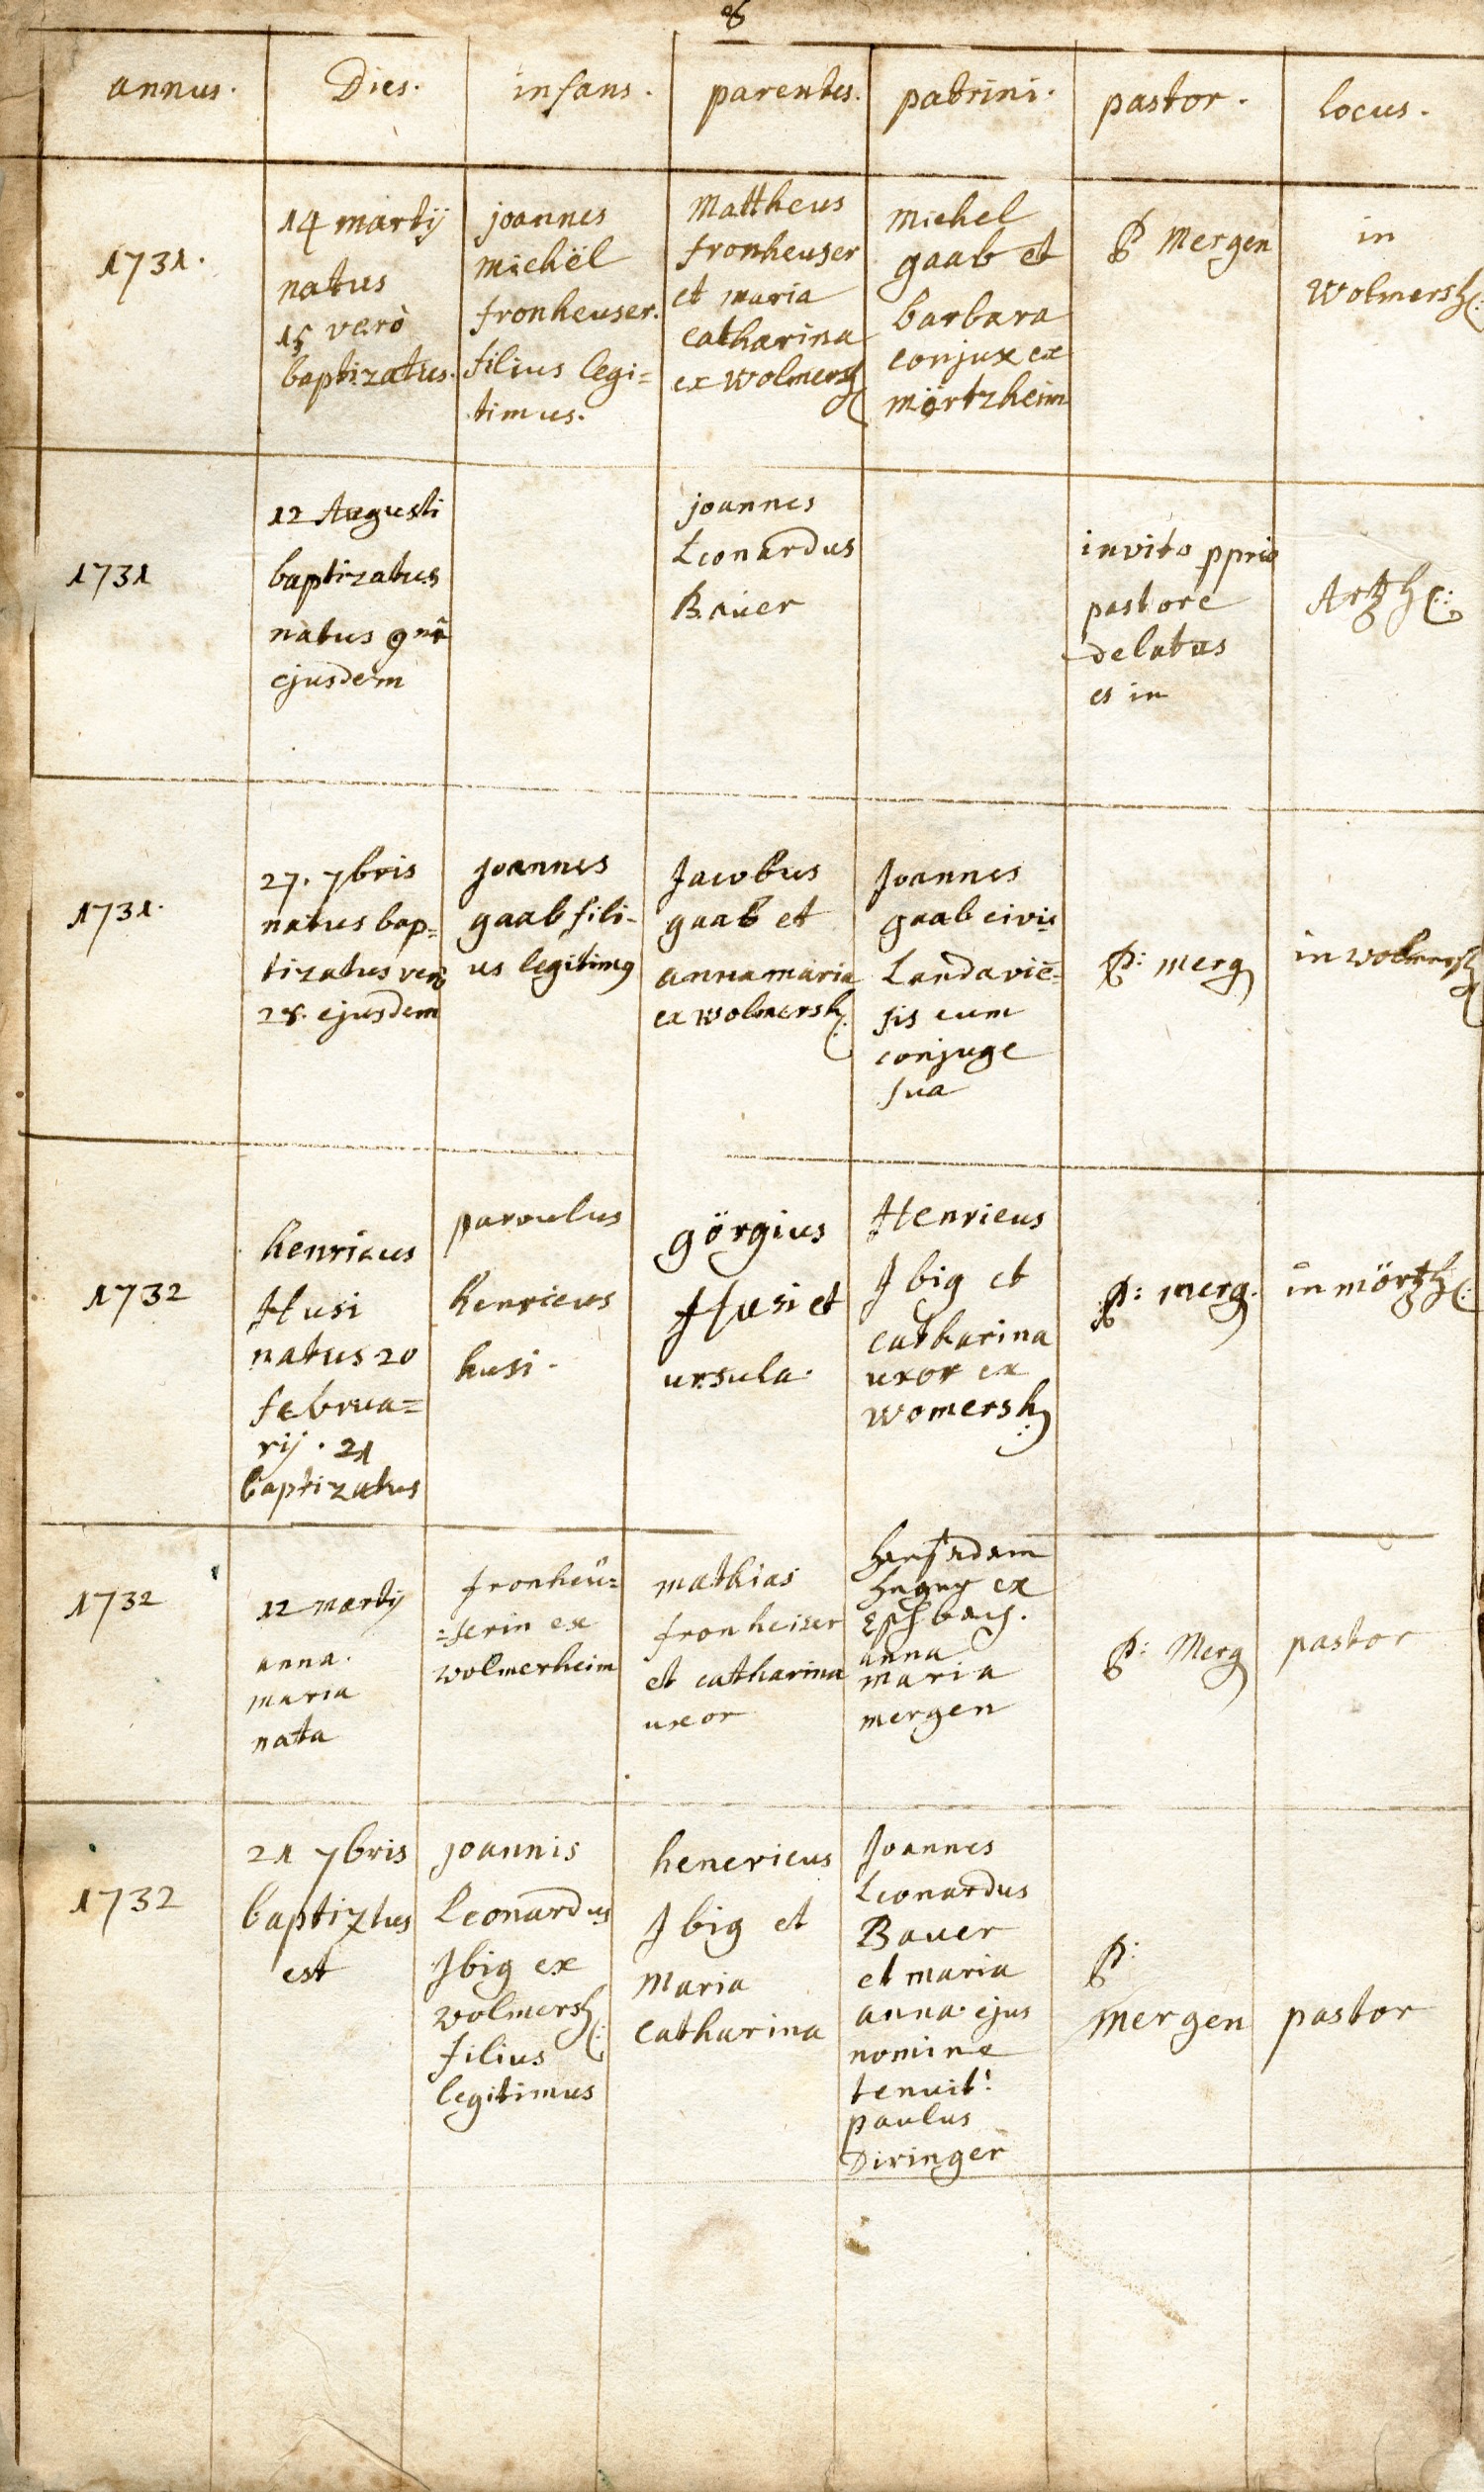 annus.
Dies.
infans.
parentes.
patrini.
pastor.
locus.
1731.
14 martij
natus
15 verò
baptizatus.
joannes
michël
fronheuser.
filius legi=
timus.
Mattheus
fronheuser
et maria
catharina
ex wolmersh
michel
gaab et
barbara
conjux ex
mörtzheim
P mergen
in
wolmersh:
1731
12 Augusti
baptizatus
natus 9nâ
ejusdem
joannes
Leonardus
Bauer
invito pprio
pastore
delatus
es in
Artzh:
1731.
27. 7bris
natus bap=
tizatus verò
28. ejusdem
joannes
gaab fili-
us legitimg
Jacobus
gaab et
anna maria
ex wolmersh:
Joannes
gaab civis
Landaviē=
sis cum
conjuge
sua
P: merg
in wolmersh
1732
henricus
Husi
natus 20
februa=
rij . 21
baptizatus
parvulus
henricus
husi.
görgius
Husi et
ursula.
Henricus
Jbig et
catharina
uxor ex
womersh
P: merg.
in mörtzh:
1732
12 martij
anna.
maria
nata
fronheü=
=serin ex
wolmerheim
mathias
fronheiser
et catharina
uxor
adam
ex
Eschbach.
anna
maria
mergen
P: Merg
pastor
1732
21 7bris
baptiztus
est
joannis
Leonardus
Jbig ex
wolmersh:
filius
legitimus
henericus
Jbig et
Maria
catharina
Joannes
Leonardus
Bauer
et maria
anna. ejus
nomine
tenuit:
paulus
Diringer
P:
mergen
pastor